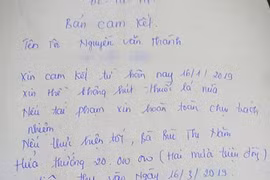 Bản cam kết.
Tên Tôi Nguyễn Văn Thành
Xin cam kết từ hôm nay 16/1/2019
Xin thề không hút thuốc lá nữa
Nếu tái phạm xin hoàn toàn chịu trách
nhiệm.
Nếu thực hiện tốt, bà Bùi Thị Năm
Thưởng 20.000.000 (Hai mươi triệu đồng)
ngày 16/3/2019.